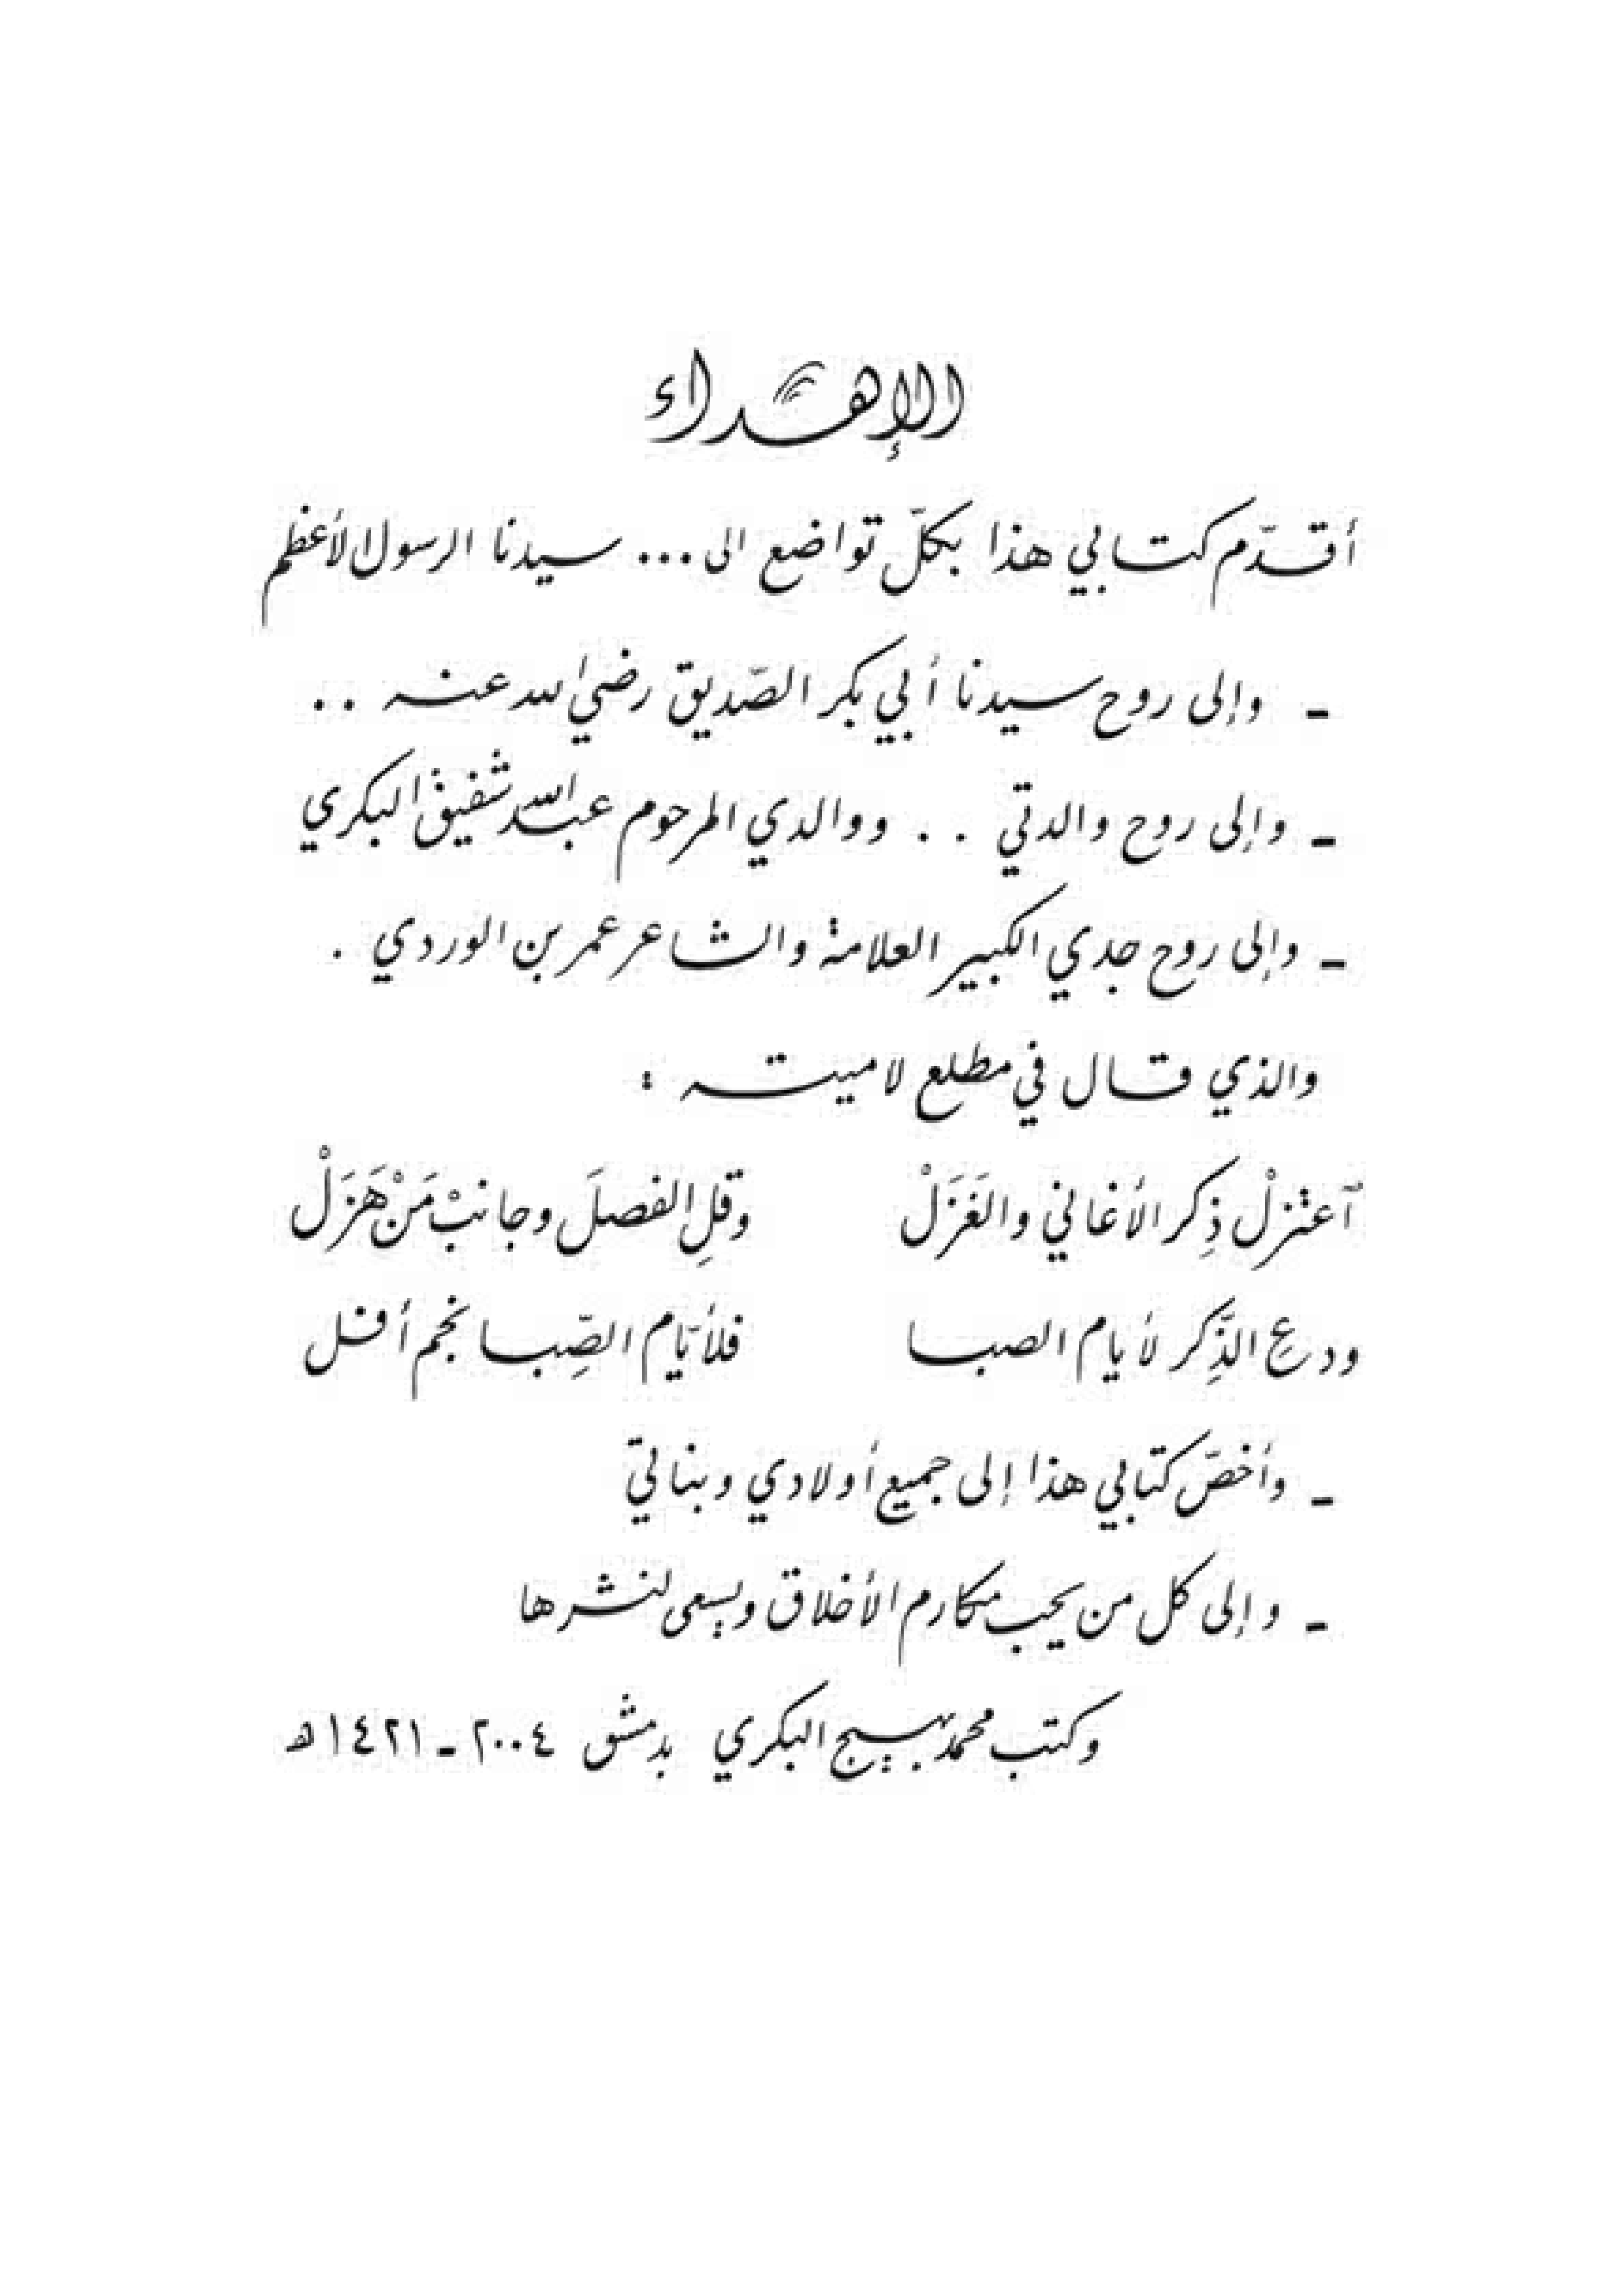 الإهداء
أقدّم كتابي هذا بكلّ تواضع الى... سيدنا الرسول الأعظم
- وإلى روح سيدنا أبي بكر الصّديق رضي الله عنه ..
- وإلى روح والدتي .. ووالدي المرحوم عبدالله شفيق البكري
- وإلى روح جدي الكبير العلامة والشاعر عمر بن الوردي .
والذي قال في مطلع لاميته :
ٱعتزلْ ذِكر الأغاني والغَزَلْ وقلِ الفصلَ وجانبْ مَنْ هَزَلْ
ودع الذِّكر لأيام الصبا فلأيّام الصِّبا نجم أفل
- وأخصّ كتابي هذا إلى جميع أولادي وبناتي
- وإلى كل من يحب مكارم الأخلاق ويسعى لنشرها
وكتب محمد بهيج البكري بدمشق ٢٠٠٤ - ١٤٢١ هـ